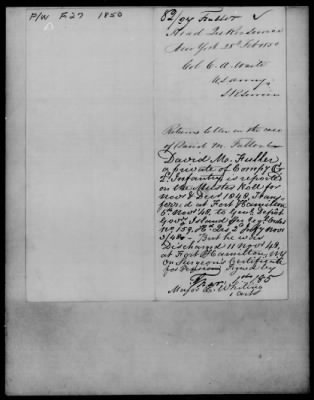 P/W F 27 1850
82/94 Fuller
Head Qrs
New York 28 Feb 1850
Col. C. A. Waite
U S army
Returns letter in the case
of David M. Fuller
David M. Fuller
a private of Compy
2d Infantry is reported
on the Muster Roll for
Novr & Decr 1848, trans
ferred at Fort Hamilton
5th Novr 48, to Genl Depot
Gov'rs Island
No 159, Hd Qrs 2d Infy Nov
3/48 - But he was
Discharged 11 Novr 48,
at Fort Hamilton, NY
on Surgeon's Certificate
for Pension Signed by
Major L. Whiting
1 Arty